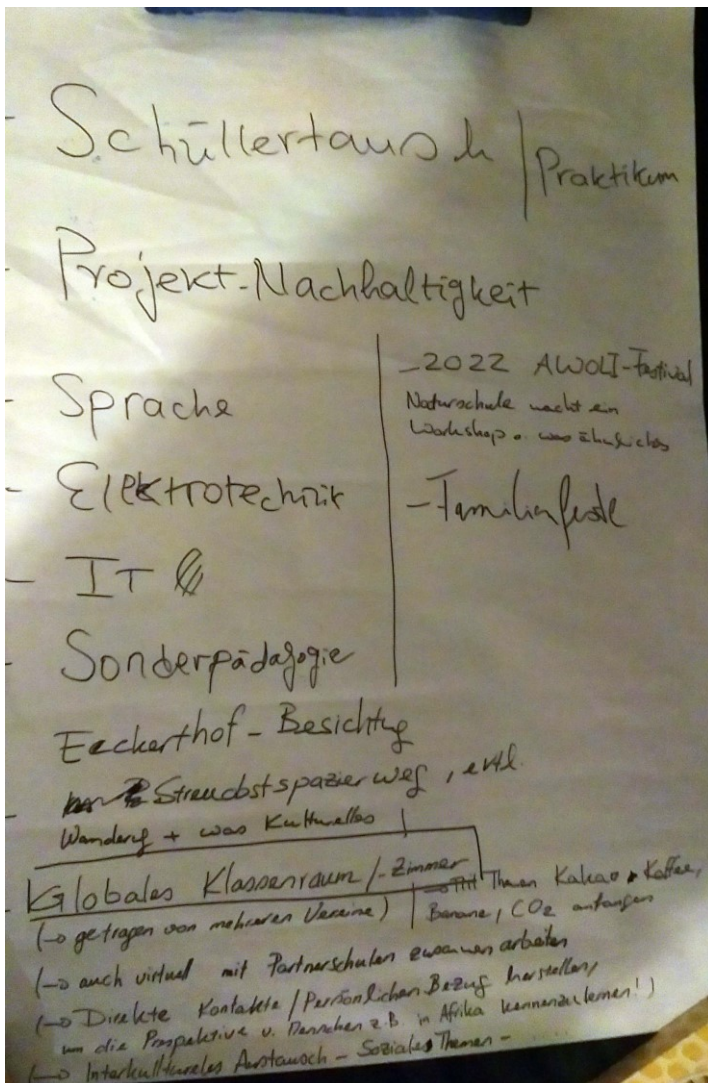 - Schüllertausch | Praktikum
- Projekt-Nachhaltigkeit
- Sprache
- Elektrotechnik
- IT
- Sonderpädagogie
- 2022 AWOLI-Festival
Naturschule macht ein
Workshop o. was ähnliches
- Familienfeste
Eckerthof - Besichtig
- Streuobstspazierweg, evtl.
Wanderug + was Kulturelles
- Globales Klassenraum/-Zimmer
(→ getragen von mehreren Vereine)
Themen Kakao, Kaffee,
Banane, CO2 anfangen
(→ auch virtuel mit Partnerschulen zusammen arbeiten
(→ Direkte Kontakte/Persönlichen Bezug herstellen,
um die Perspektive v. Menschen z.B. in Afrika kennenzulernen!)
(→ Interkulturelles Austausch - Soziales Themen -